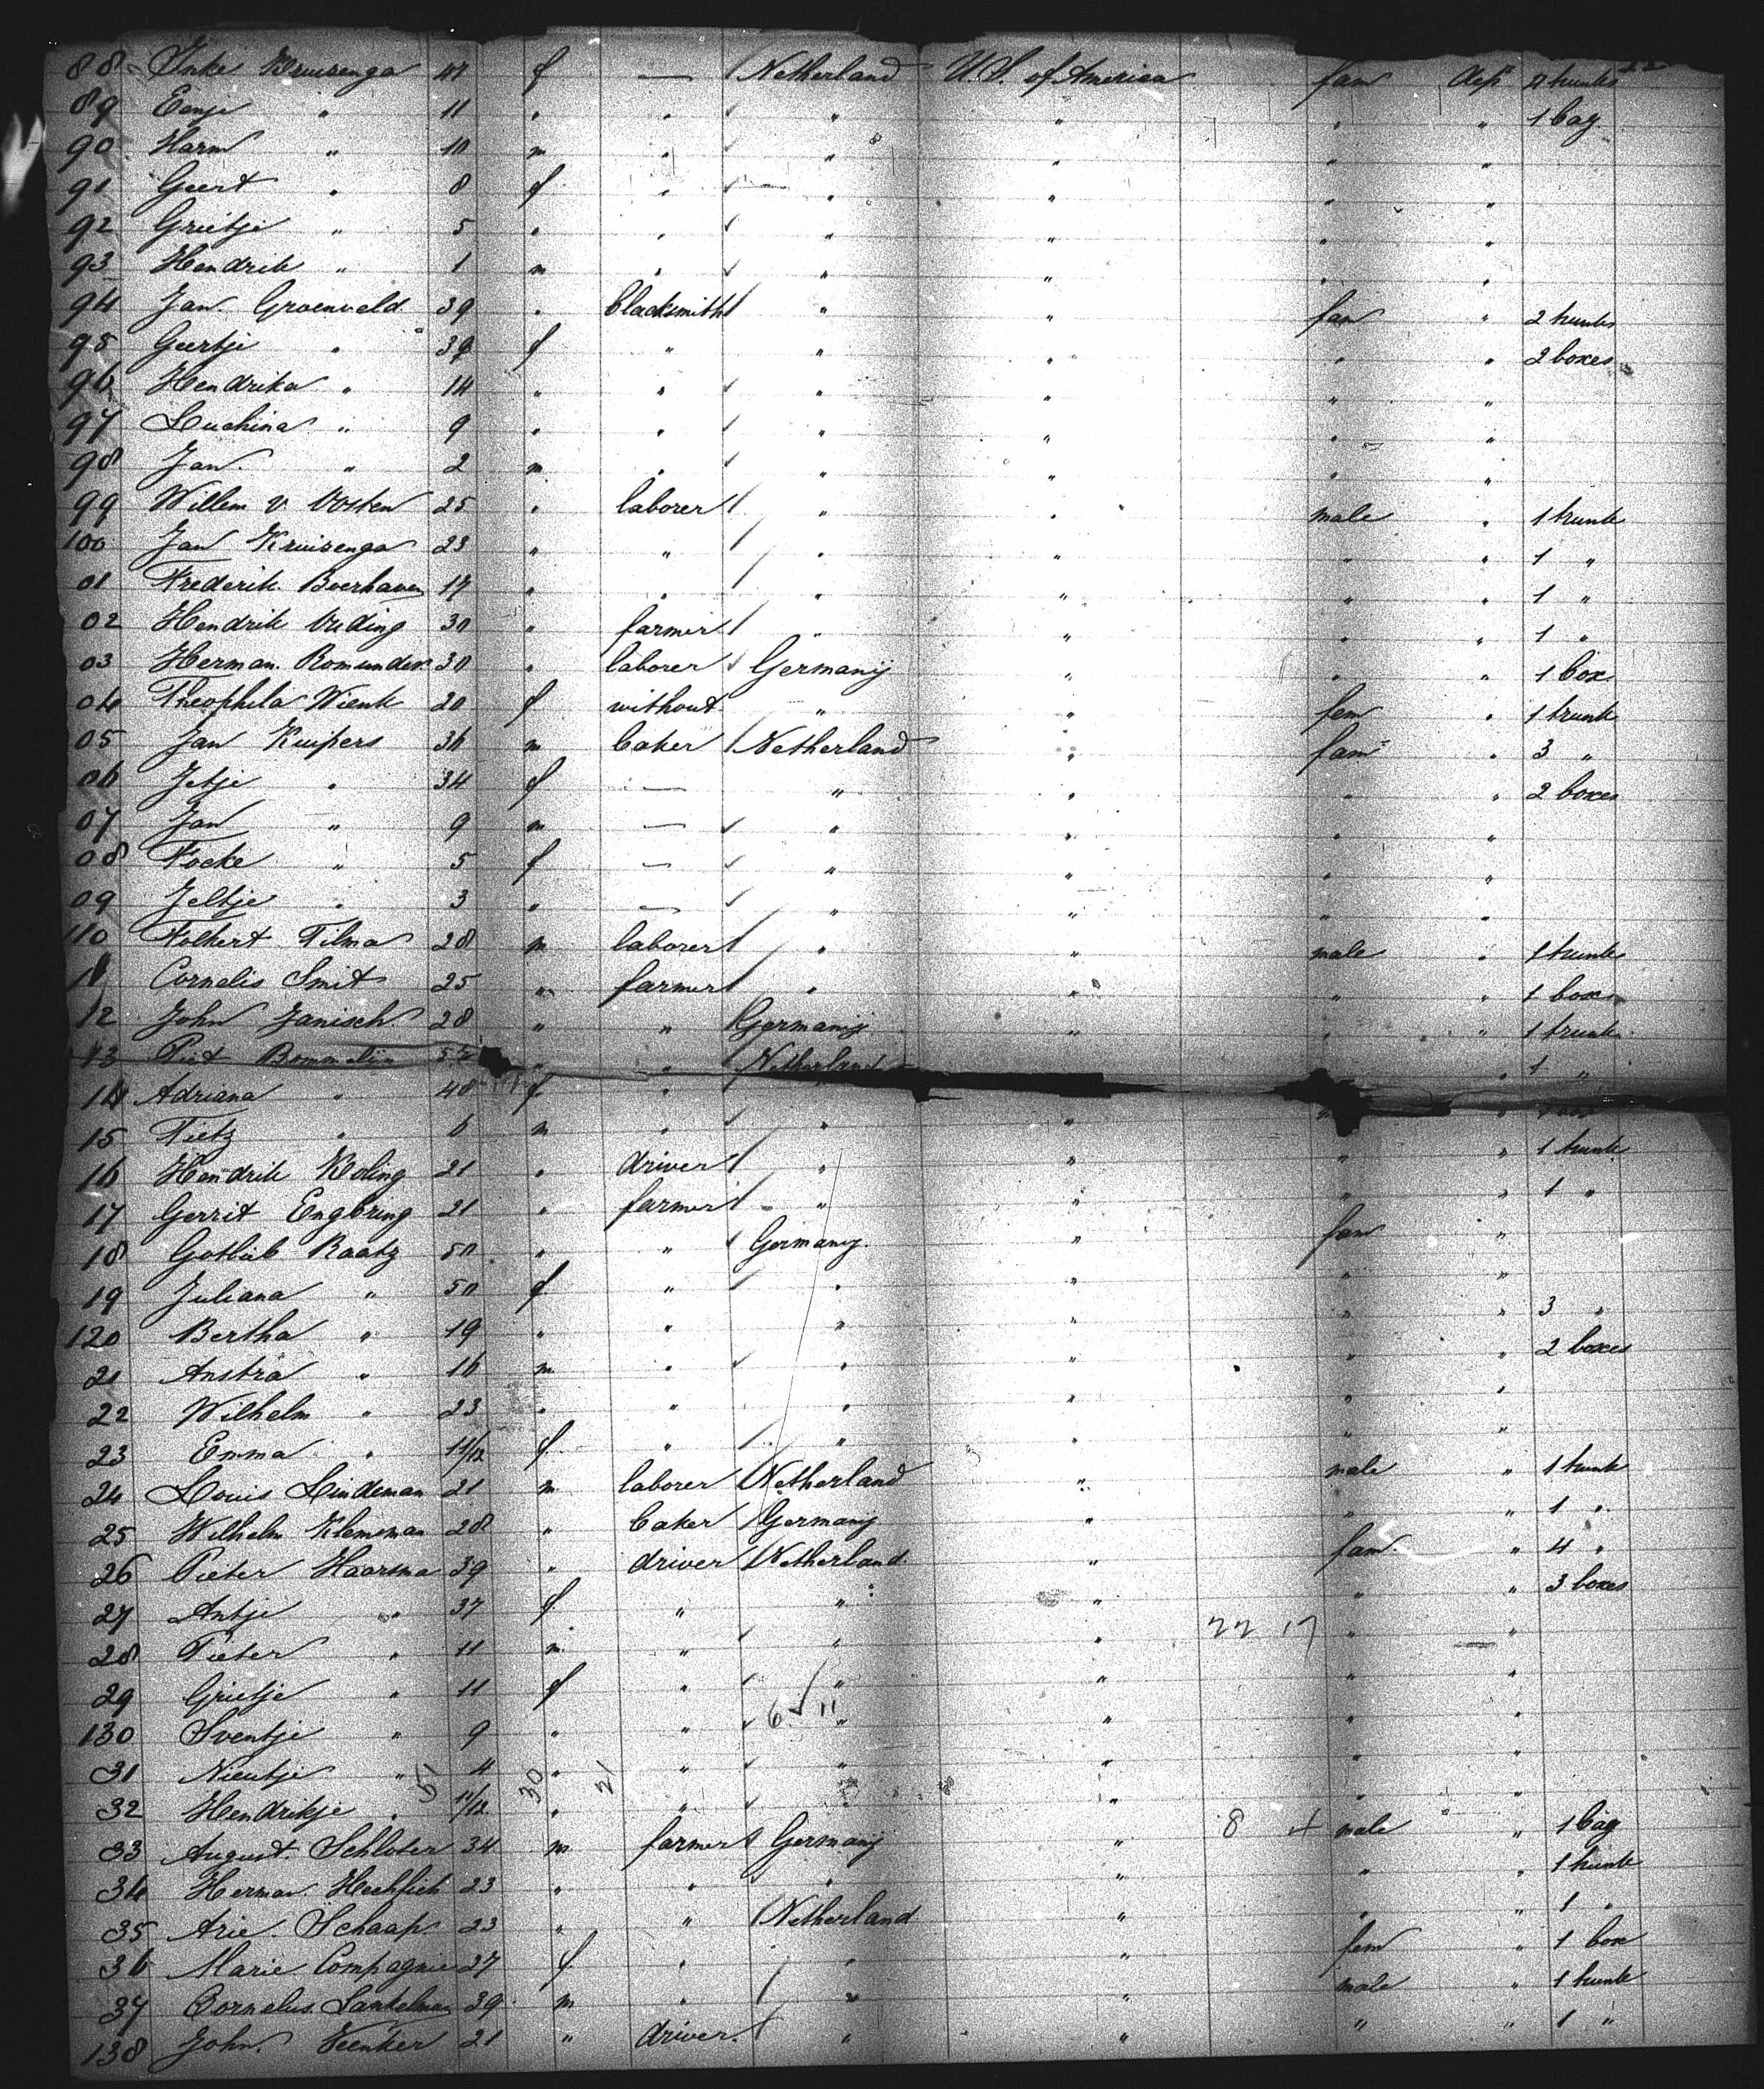 88 Inke Kruisenga 47 f — Netherland U.S. of America fam Aft 2 trunks
89 Eenje " 11 " " " " " " 1 bag
90 Harm " 10 m " " " " "
91 Geert " 8 f " " " " "
92 Grietje " 5 " " " " " "
93 Hendrik " 1 m " " " " "
94 Jan Groenveld 39 " blacksmith " " fam " 2 trunks
95 Geertje " 39 f " " " " " 2 boxes
96 Hendrika " 14 " " " " " "
97 Luchina " 9 " " " " " "
98 Jan " 2 m " " " " "
99 Willem v 25 " laborer " " male " 1 trunk
100 Jan Kruisenga 23 " " " " " " 1 "
01 Frederik Boerhaven 17 " " " " " " 1 "
02 Hendrik Vuding 30 " farmer " " " " 1 "
03 Herman Romunder 30 " laborer Germany " " " 1 box
04 Theophila Wienk 20 f without " " fem " 1 trunk
05 Jan Kuipers 36 m baker Netherland " fam " 3 "
06 Jetje " 34 f — " " " " 2 boxes
07 Jan " 9 m — " " " "
08 Focke " 5 f — " " " "
09 Jeltje " 3 " — " " " "
110 Folkert Tilma 28 m laborer " " male " 1 trunk
11 Cornelis Smit 25 " farmer " " " " 1 box
12 John Janisch 28 " " Germany " " " 1 trunk
13 Piet " " Netherland " 1 "
14 Adriana " 48 f "
15 Tietz " 6 m " " " " "
16 Hendrik Koling 21 " driver " " " " 1 trunk
17 Gerrit Engbring 21 " farmer " " " " 1 "
18 Gotlieb Raatz 50 " " Germany " fam "
19 Juliana " 50 f " " " " "
120 Bertha " 19 " " " " " " 3 "
21 Anstra " 16 m " " " " " 2 boxes
22 Wilhelm " 23 " " " " " "
23 Emma " 11/12 f " " " " "
24 Louis Lindeman 21 m laborer Netherland " male " 1 trunk
25 Wilhelm Klemsman 28 " baker Germany " " " 1 "
26 Pieter Haarsma 39 " driver Netherland " fam " 4 "
27 Antje " 37 f " " " " " 3 boxes
28 Pieter " 11 m " " " 22 17 " "
29 Grietje " 11 f " " " " "
130 Sventje " 9 " " 6 11 " " " "
31 Nientje " 4 " " " " " "
51 30 21
32 Hendrikje " 11/12 " " " " " "
33 August Schloter 34 m farmer Germany " 8 4 male " 1 bag
34 Herman 23 " " " " " " 1 trunk
35 Arie Schaap 23 " " Netherland " " " 1 "
36 Marie Compagnie 27 f " " " fem " 1 box
37 Cornelus Lankelman 39 m " " " male " 1 trunk
138 John Veenker 21 " driver " " " " 1 "